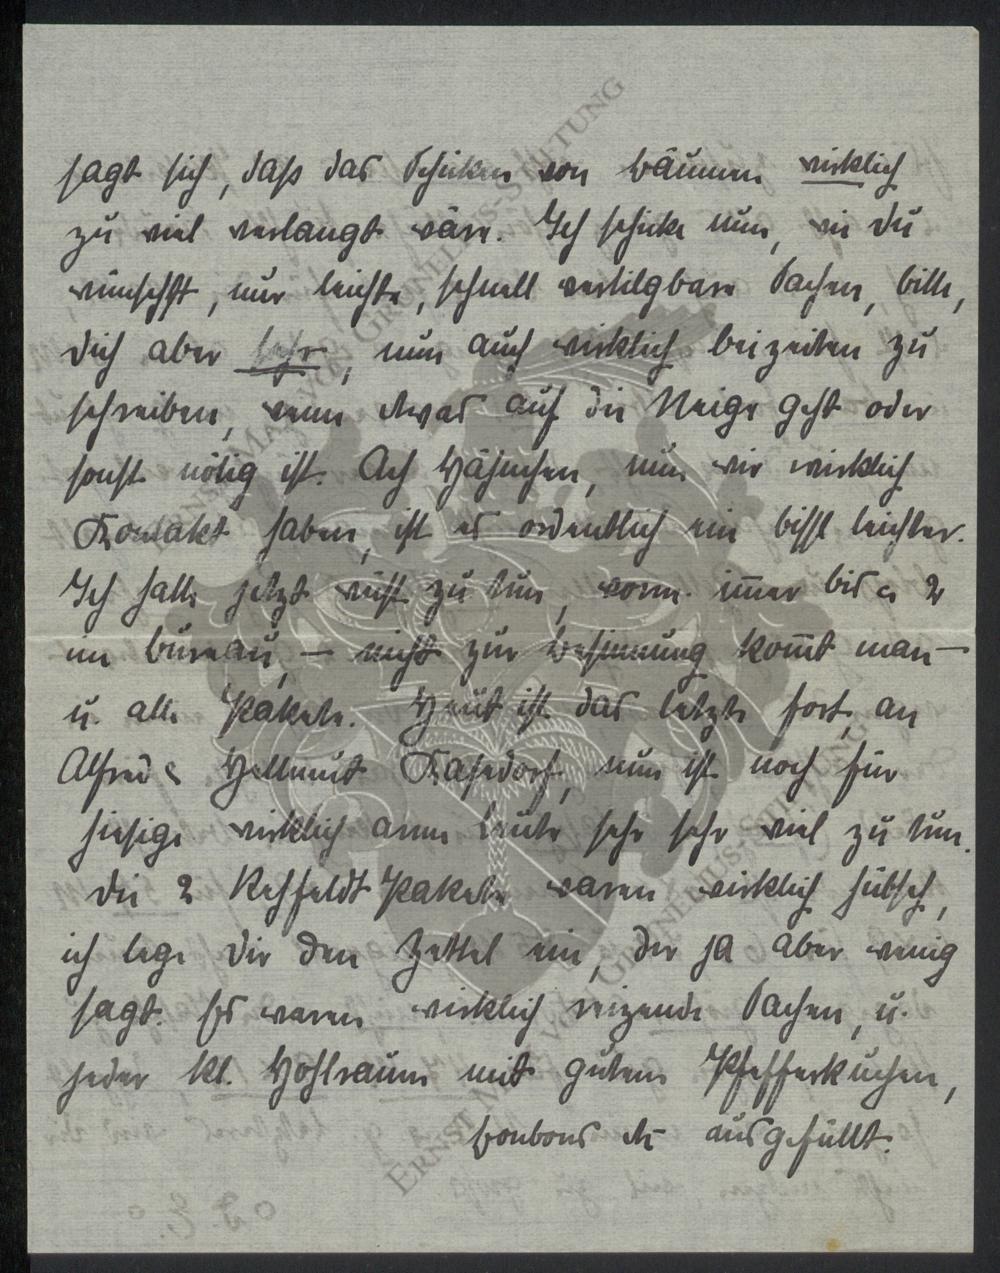 sagt sich, daß das Schicken von Bäumen wirklich
zu viel verlangt wäre. Ich schicke nun, wie du
wünschst, nur leichte, schnell vertilgbare Sachen, bitte,
dich aber sehr, nun auch wirklich beizeiten zu
schreiben, wenn etwas auf die Neige geht oder
sonst nötig ist. Ach Hähnchen, nun wir wirklich
Kontakt haben, ist es ordentlich ein bissl leichter.
Ich hatte jetzt viel zu tun, vorm. im̅er bis 2
im Bureau, – nicht zur Besinnung kom̅t man –
u. alle Pakete. Heut ist das letzte fort, an
Alfred & Hellmut Kasedorf, nun ist noch für
hiesige wirklich arme Leute sehr sehr viel zu tun.
Die 2 Rehfeldt Pakete waren wirklich hübsch,
ich lege dir den Zettel ein, der ja aber wenig
sagt. Es waren wirklich reizende Sachen, u.
jeder kl. Hohlraum mit gutem Pfefferkuchen,
Bonbons etc ausgefüllt.
ERNST MAX VON GRUNELIUS-STIFTUNG
ERNST MAX VON GRUNELIUS-STIFTUNG